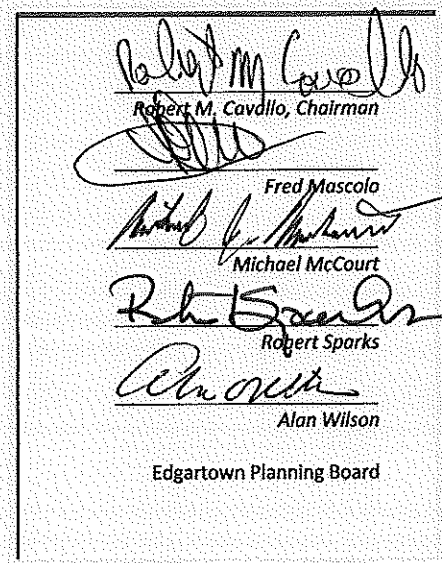 Robert M Cavallo
Robert M. Cavallo, Chairman
Fred Mascolo
Michael McCourt
Robert Sparks
Alan Wilson
Edgartown Planning Board